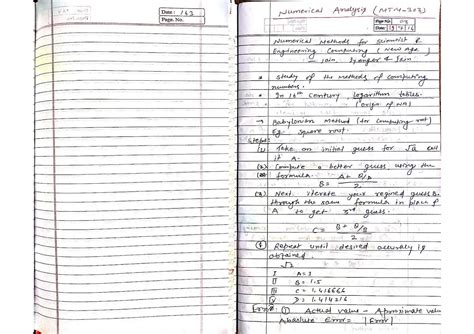 Date: 163
Page. No.
Numerical Analysis (MTH-303)
Page No. 03
Date
Numerical Methods for Scientist &
Engineering Computing (New Age)
— Jain, Iyenger & Jain.
* Study of the methods of computing
numbers.
* In 16th Century, logarithm tables.
(origin of NA)
→ Babylonian Method (for computing root)
Eg. square root.
Steps:
(1) Take an initial guess for √a call
it A.
(2) Compute a better guess using the
formula.
B = A + a/A
2
(3) Next iterate your guess B.
through the same formula in place of
A to get 3rd guess.
C = B + a/B
2
(4) Repeat until desired accuracy is
obtained.
√2
I A = 1
II B = 1.5
III C = 1.416666
IV D = 1.414216
Error: (1) Actual value - Aproximate value
Absolute Error = |Error|